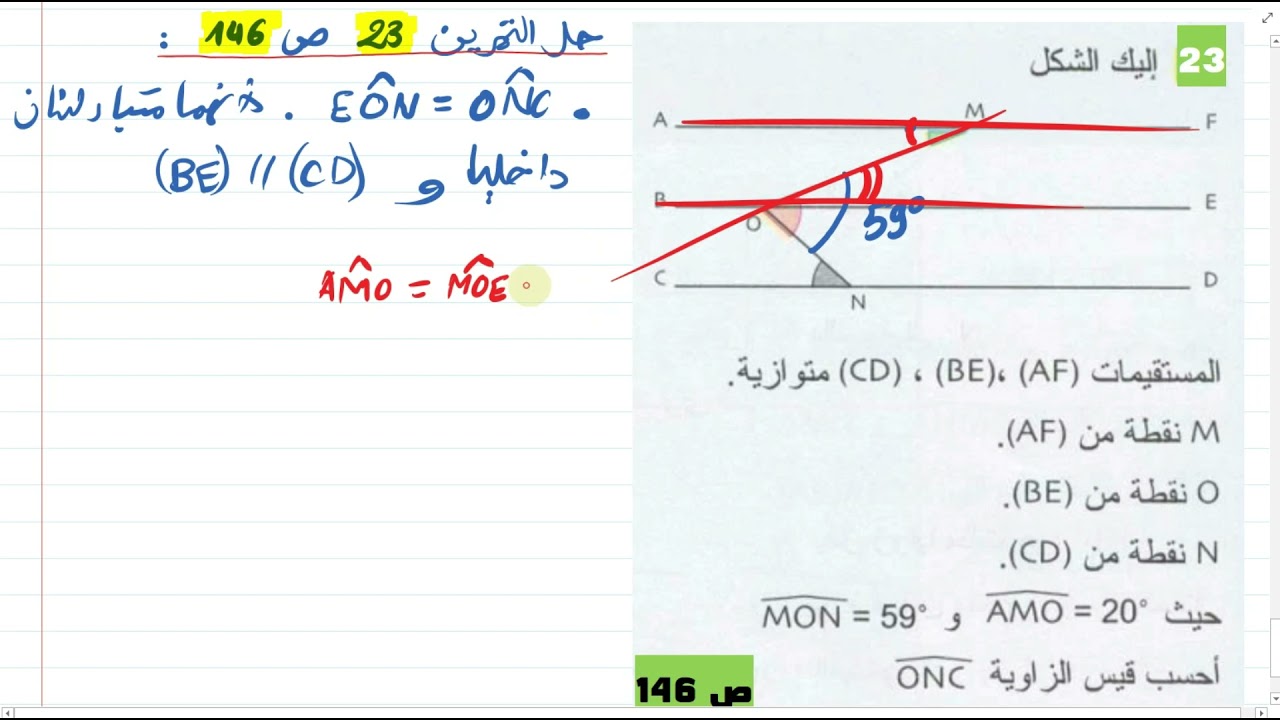 حل التمرين 23 ص 146 :
• EÔN = ON̂C . لأنهما متبادلتان
داخليا و (BE) // (CD)
AM̂O = MÔE
23 إليك الشكل
A M F
B O E
59°
C N D
المستقيمات (AF) ،(BE) ، (CD) متوازية.
M نقطة من (AF).
O نقطة من (BE).
N نقطة من (CD).
حيث AMO = 20° و MON = 59°
أحسب قيس الزاوية ONC
ص 146